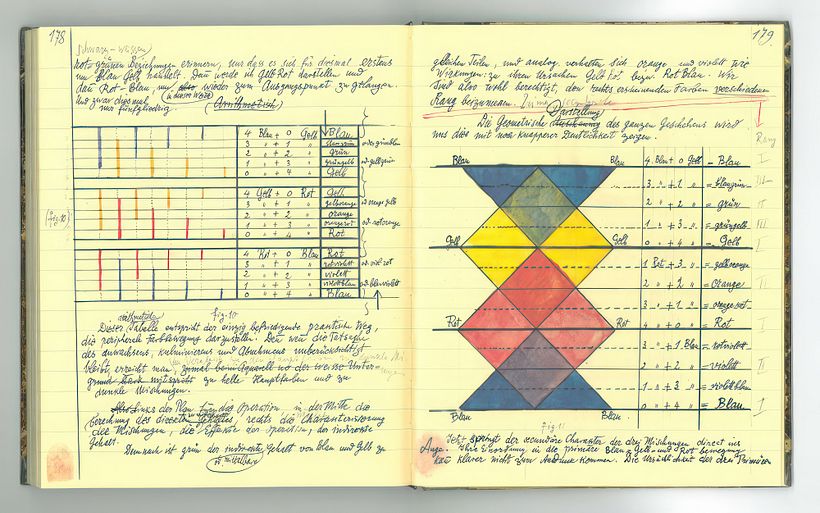 178
schwarz-weissen
rot-grünen Beziehungen erinnern, nur dass es sich für diesmal erstens
um Blau Gelb handelt. Dann werde ich Gelb Rot darstellen und
dann Rot-Blau, um also wieder zum Ausgangspunkt zu gelangen.
in dieser Weise
Und zwar diesmal (Arithmetisch)
nur fünfgliedrig
4 Blau + 0 Gelb Blau
3 " + 1 "
2 " + 2 " grün
1 " + 3 " grüngelb od gelbgrün
0 " + 4 " Gelb
4 Gelb + 0 Rot Gelb
3 " + 1 " gelborange
2 " + 2 " orange
(fig. 10) 1 " + 3 " orangerot od rotorange
0 " + 4 " Rot
4 Rot + 0 Blau Rot
3 " + 1 " rotviolett od viol rot
2 " + 2 " violett
1 " + 3 " violettblau od blauviolett
0 " + 4 " Blau
arithmetischen fig. 10
Dieser Tabelle entspricht der einzig befriedigende practische Weg,
die peripherale Farbbewegung darzustellen. Denn wenn die Tatsache
des Anwachsens, Kulminierens und Abnehmens unberücksichtigt
bleibt, erreicht man, zumal beim Aquarell wo der weisse Unter-
grund stark mitspricht zu helle Hauptfarben und zu
dunkle Mischungen.
Also links der Plan für die Operation, in der Mitte die
berechnung des Gehaltes, rechts die Charakterisierung
der Mischungen, die Effekte der operation, der indirecte
Gehalt.
Demnach ist grün der indirecte Gehalt von Blau und Gelb zu
179.
gleichen Teilen, und analog verhalten sich orange und violett ihre
Wirkungen: zu ihren Ursachen Gelb Rot bezw. Rot Blau. Wir
sind also wohl berechtigt, den rechts erscheinenden Farben verschiedenen
Rang beizumessen.
Darstellung
Die Geometrische des ganzen Geschehens wird
uns dies mit noch knapperer Deutlichkeit zeigen.
Rang
Blau Blau 4 Blau + 0 Gelb = Blau I
3 " + 1 " = blaugrün
2 " + 2 " = grün II
1 " + 3 " = grüngelb III
Gelb Gelb 0 " + 4 " = Gelb I
1 Rot + 3 " = gelborange
2 " + 2 " = Orange II
3 " + 1 " = orangerot
Rot Rot 4 " + 0 " = Rot I
3 " + 1 Blau = rotviolett
2 " + 2 " = violett II
1 " + 3 " = violettblau
Blau Blau 0 " + 4 " = Blau I
fig. 11
Jetzt springt der secundäre Charakter der drei Mischungen direct ins
Auge. Ihre Einordnung in die primäre Blau-Gelb- und Rot bewegung
kann klarer nicht zum Ausdruck kommen. Die Ursächlichkeit der drei Primären